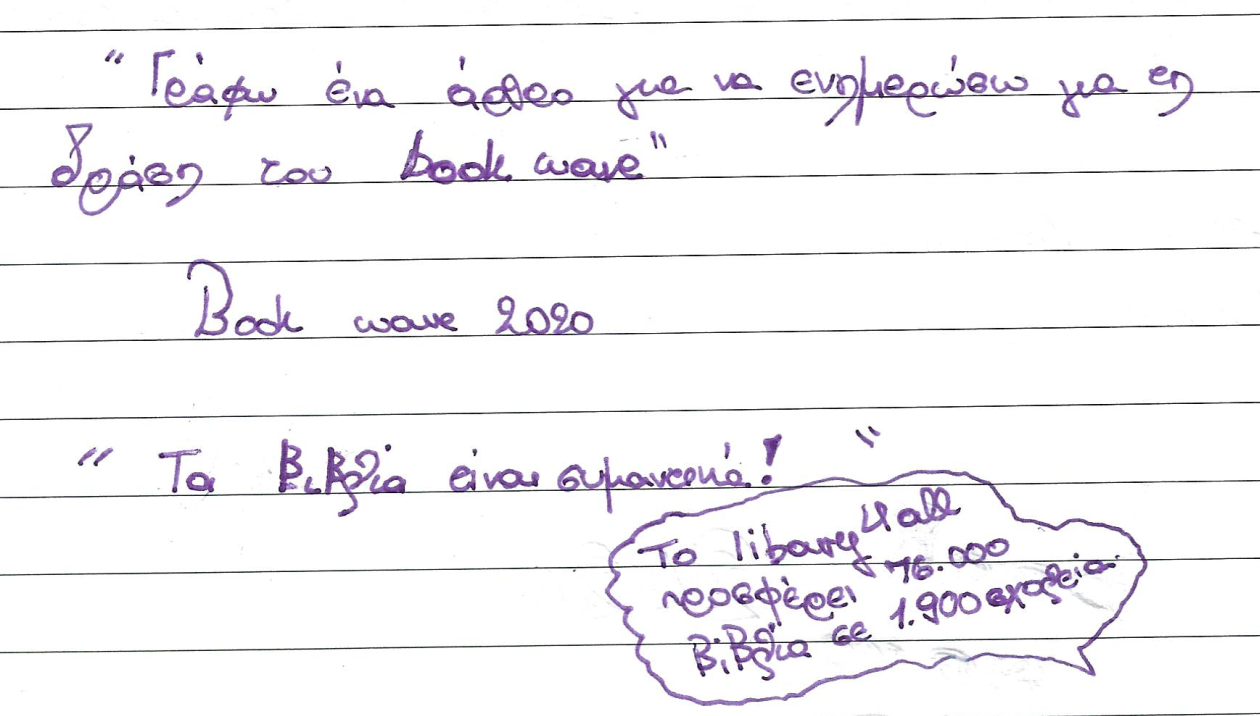 “Γράφω ένα άρθρο για να ενημερώσω για τη
δράση του book wave”
Book wave 2020
“Τα Βιβλία είναι συμαντικά! “
Το libary Hall
προσφέρει 76.000
Βιβλία σε 1.900 σχολεία.